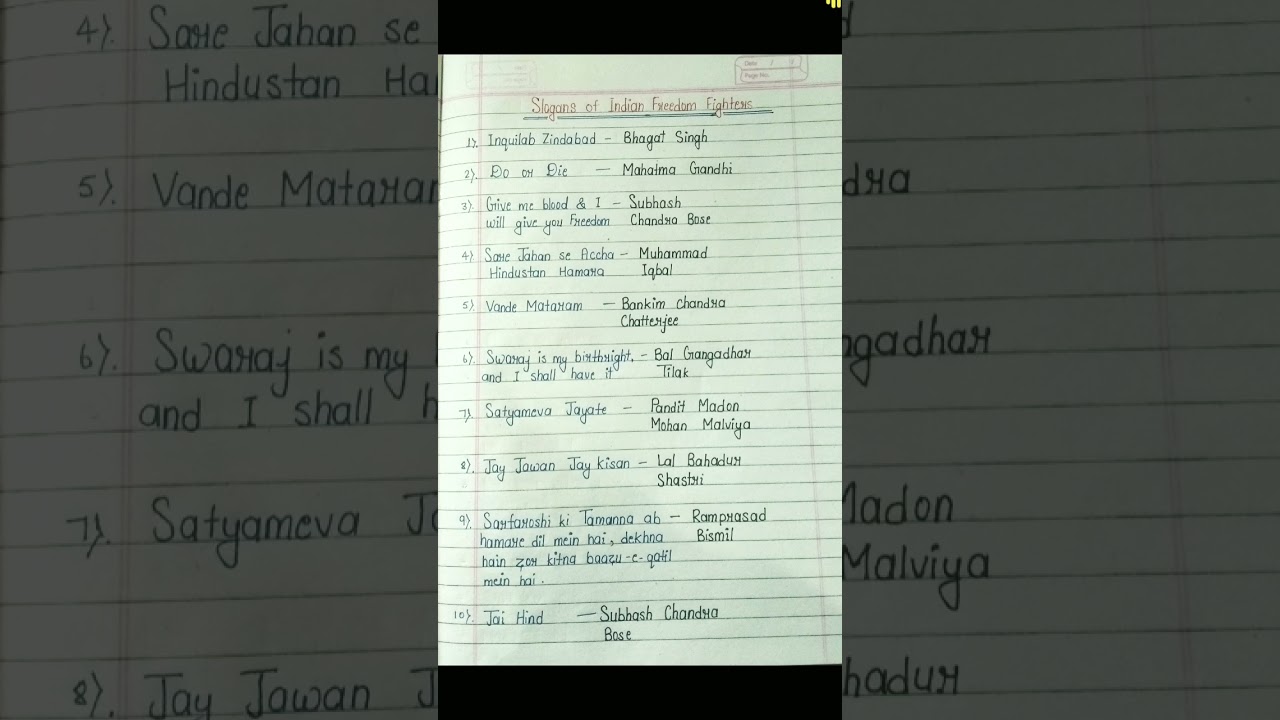 Date / /
Page No.
Slogans of Indian Freedom Fighters
1). Inquilab Zindabad - Bhagat Singh
2). Do or Die — Mahatma Gandhi
3). Give me blood & I - Subhash
will give you Freedom Chandra Bose
4). Sare Jahan se Accha - Muhammad
Hindustan Hamara Iqbal
5). Vande Mataram — Bankim Chandra
Chatterjee
6). Swaraj is my birthright, - Bal Gangadhar
and I shall have it Tilak
7). Satyameva Jayate - Pandit Madon
Mohan Malviya
8). Jay Jawan Jay Kisan - Lal Bahadur
Shastri
9). Sarfaroshi ki Tamanna ab - Ramprasad
hamare dil mein hai, dekhna Bismil
hain zor kitna baazu-e-qatil
mein hai.
10). Jai Hind — Subhash Chandra
Bose
4). Sare Jahan se
Hindustan Ha
5). Vande Matara
dra
6). Swaraj is my
ngadhar
and I shall h
7). Satyameva J
Madon
Malviya
8). Jay Jawan J
hadur